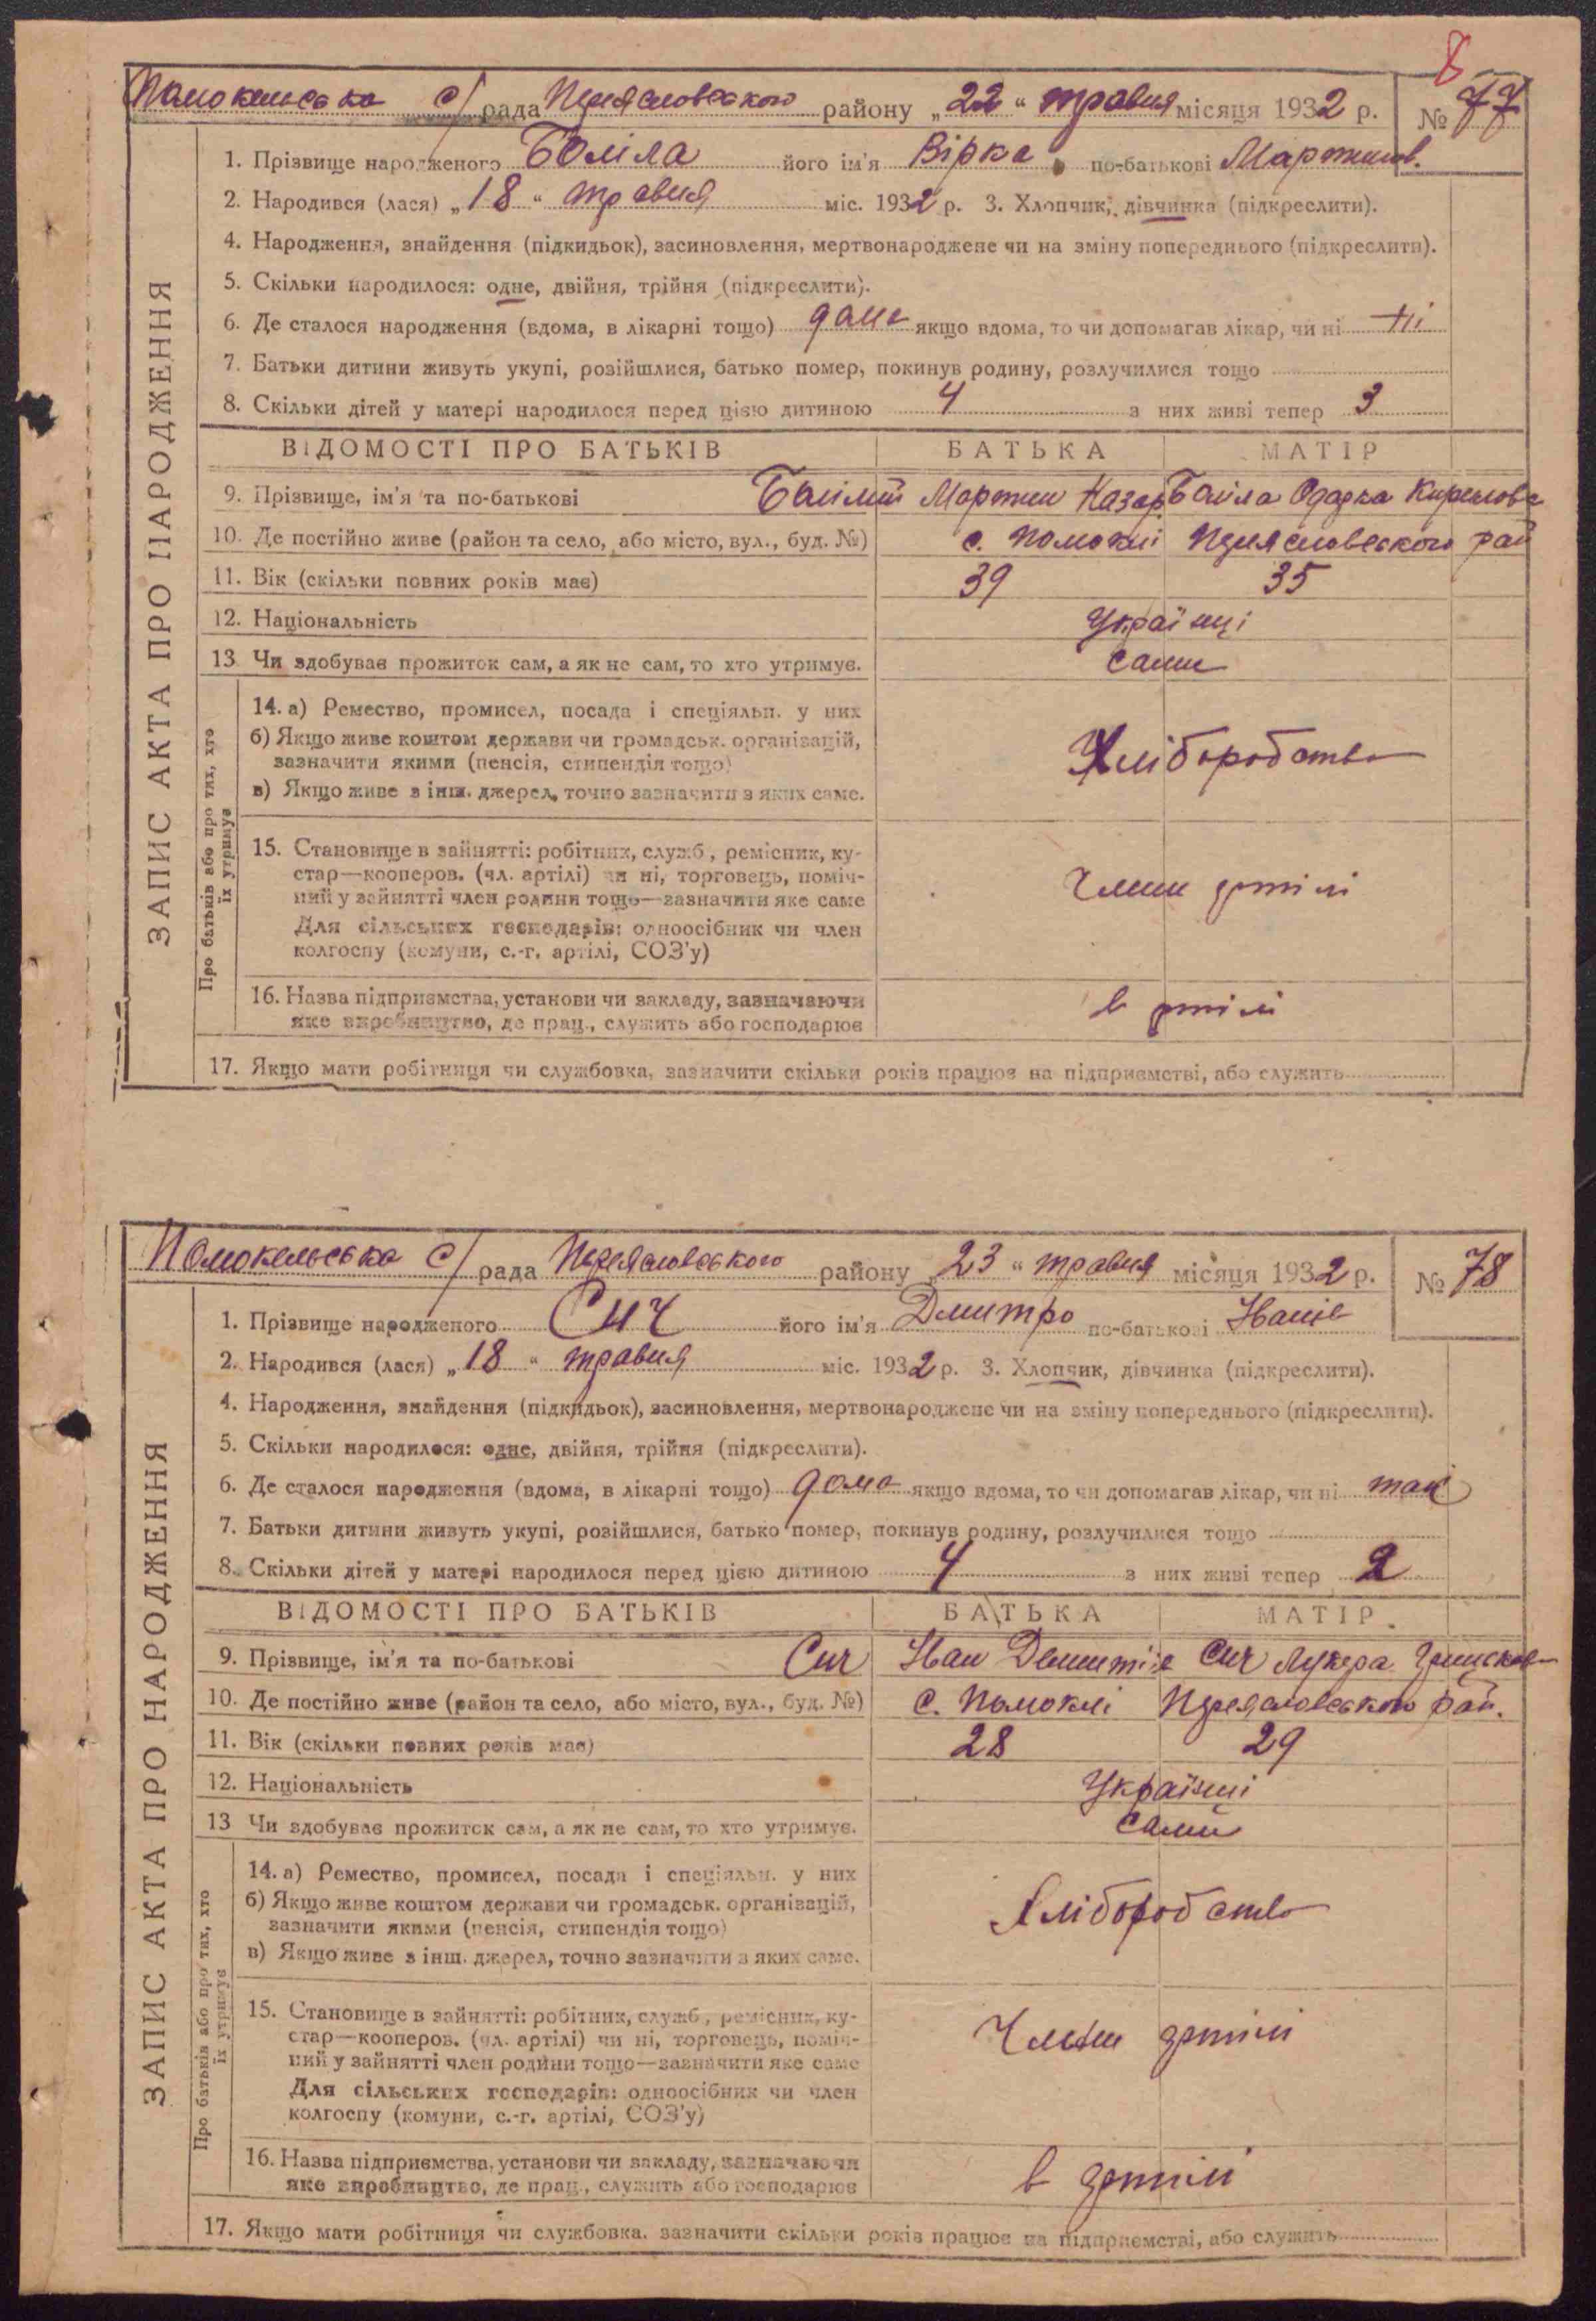 8
Помокельська с/рада Переяславського району „22“ травня місяця 1932 р. № 77
ЗАПИС АКТА ПРО НАРОДЖЕННЯ
1. Прізвище народженого Боліла його ім'я Вірка по-батькові Мартинов.
2. Народився (лася) „18“ травня міс. 1932 р. 3. Хлопчик, дівчинка (підкреслити).
4. Народження, знайдення (підкидьок), засиновлення, мертвонароджене чи на зміну попереднього (підкреслити).
5. Скільки народилося: одне, двійня, трійня (підкреслити).
6. Де сталося народження (вдома, в лікарні тощо) дома якщо вдома, то чи допомагав лікар, чи ні ні
7. Батьки дитини живуть укупі, розійшлися, батько помер, покинув родину, розлучилися тощо
8. Скільки дітей у матері народилося перед цією дитиною 4 з них живі тепер 3
ВІДОМОСТІ ПРО БАТЬКІВ БАТЬКА МАТІР
9. Прізвище, ім'я та по-батькові Мартин Назар Одарка Кирилова
10. Де постійно живе (район та село, або місто, вул., буд. №) с. Помоклі Переяславського рай
11. Вік (скільки повних років має) 39 35
12. Національність Українці
13 Чи здобуває прожиток сам, а як не сам, то хто утримує. Сами
Про батьків або про тих, хто їх утримує
14. а) Ремество, промисел, посада і спеціяльн. у них
б) Якщо живе коштом держави чи громадськ. організацій,
зазначити якими (пенсія, стипендія тощо)
в) Якщо живе з інш. джерел, точно зазначити з яких саме.
Хліборобство
15. Становище в зайнятті: робітник, служб., ремісник, ку-
стар—кооперов. (чл. артілі) чи ні, торговець, поміч-
ний у зайнятті член родини тощо—зазначити яке саме
Для сільських господарів: одноосібник чи член
колгоспу (комуни, с.-г. артілі, СОЗ'у)
Члени артілі
16. Назва підприємства, установи чи закладу, зазначаючи
яке виробництво, де прац., служить або господарює
в артілі
17. Якщо мати робітниця чи службовка, зазначити скільки років працює на підприємстві, або служить
Помокельська с/рада Переяславського району „23“ травня місяця 1932 р. № 78
ЗАПИС АКТА ПРО НАРОДЖЕННЯ
1. Прізвище народженого Сич його ім'я Дмитро по-батькові Іванів
2. Народився (лася) „18“ травня міс. 1932 р. 3. Хлопчик, дівчинка (підкреслити).
4. Народження, знайдення (підкидьок), засиновлення, мертвонароджене чи на зміну попереднього (підкреслити).
5. Скільки народилося: одне, двійня, трійня (підкреслити).
6. Де сталося народження (вдома, в лікарні тощо) дома якщо вдома, то чи допомагав лікар, чи ні
7. Батьки дитини живуть укупі, розійшлися, батько помер, покинув родину, розлучилися тощо
8. Скільки дітей у матері народилося перед цією дитиною 4 з них живі тепер 2
ВІДОМОСТІ ПРО БАТЬКІВ БАТЬКА МАТІР
9. Прізвище, ім'я та по-батькові Сич Іван Дмитрів Сич Лукера
10. Де постійно живе (район та село, або місто, вул., буд. №) с. Помоклі Переяславського рай.
11. Вік (скільки повних років має) 28 29
12. Національність Українці
13 Чи здобуває прожиток сам, а як не сам, то хто утримує. Сами
Про батьків або про тих, хто їх утримує
14. а) Ремество, промисел, посада і спеціяльн. у них
б) Якщо живе коштом держави чи громадськ. організацій,
зазначити якими (пенсія, стипендія тощо)
в) Якщо живе з інш. джерел, точно зазначити з яких саме.
Хліборобство
15. Становище в зайнятті: робітник, служб., ремісник, ку-
стар—кооперов. (чл. артілі) чи ні, торговець, поміч-
ний у зайнятті член родини тощо—зазначити яке саме
Для сільських господарів: одноосібник чи член
колгоспу (комуни, с.-г. артілі, СОЗ'у)
Члени артілі
16. Назва підприємства, установи чи закладу, зазначаючи
яке виробництво, де прац., служить або господарює
в артілі
17. Якщо мати робітниця чи службовка, зазначити скільки років працює на підприємстві, або служить